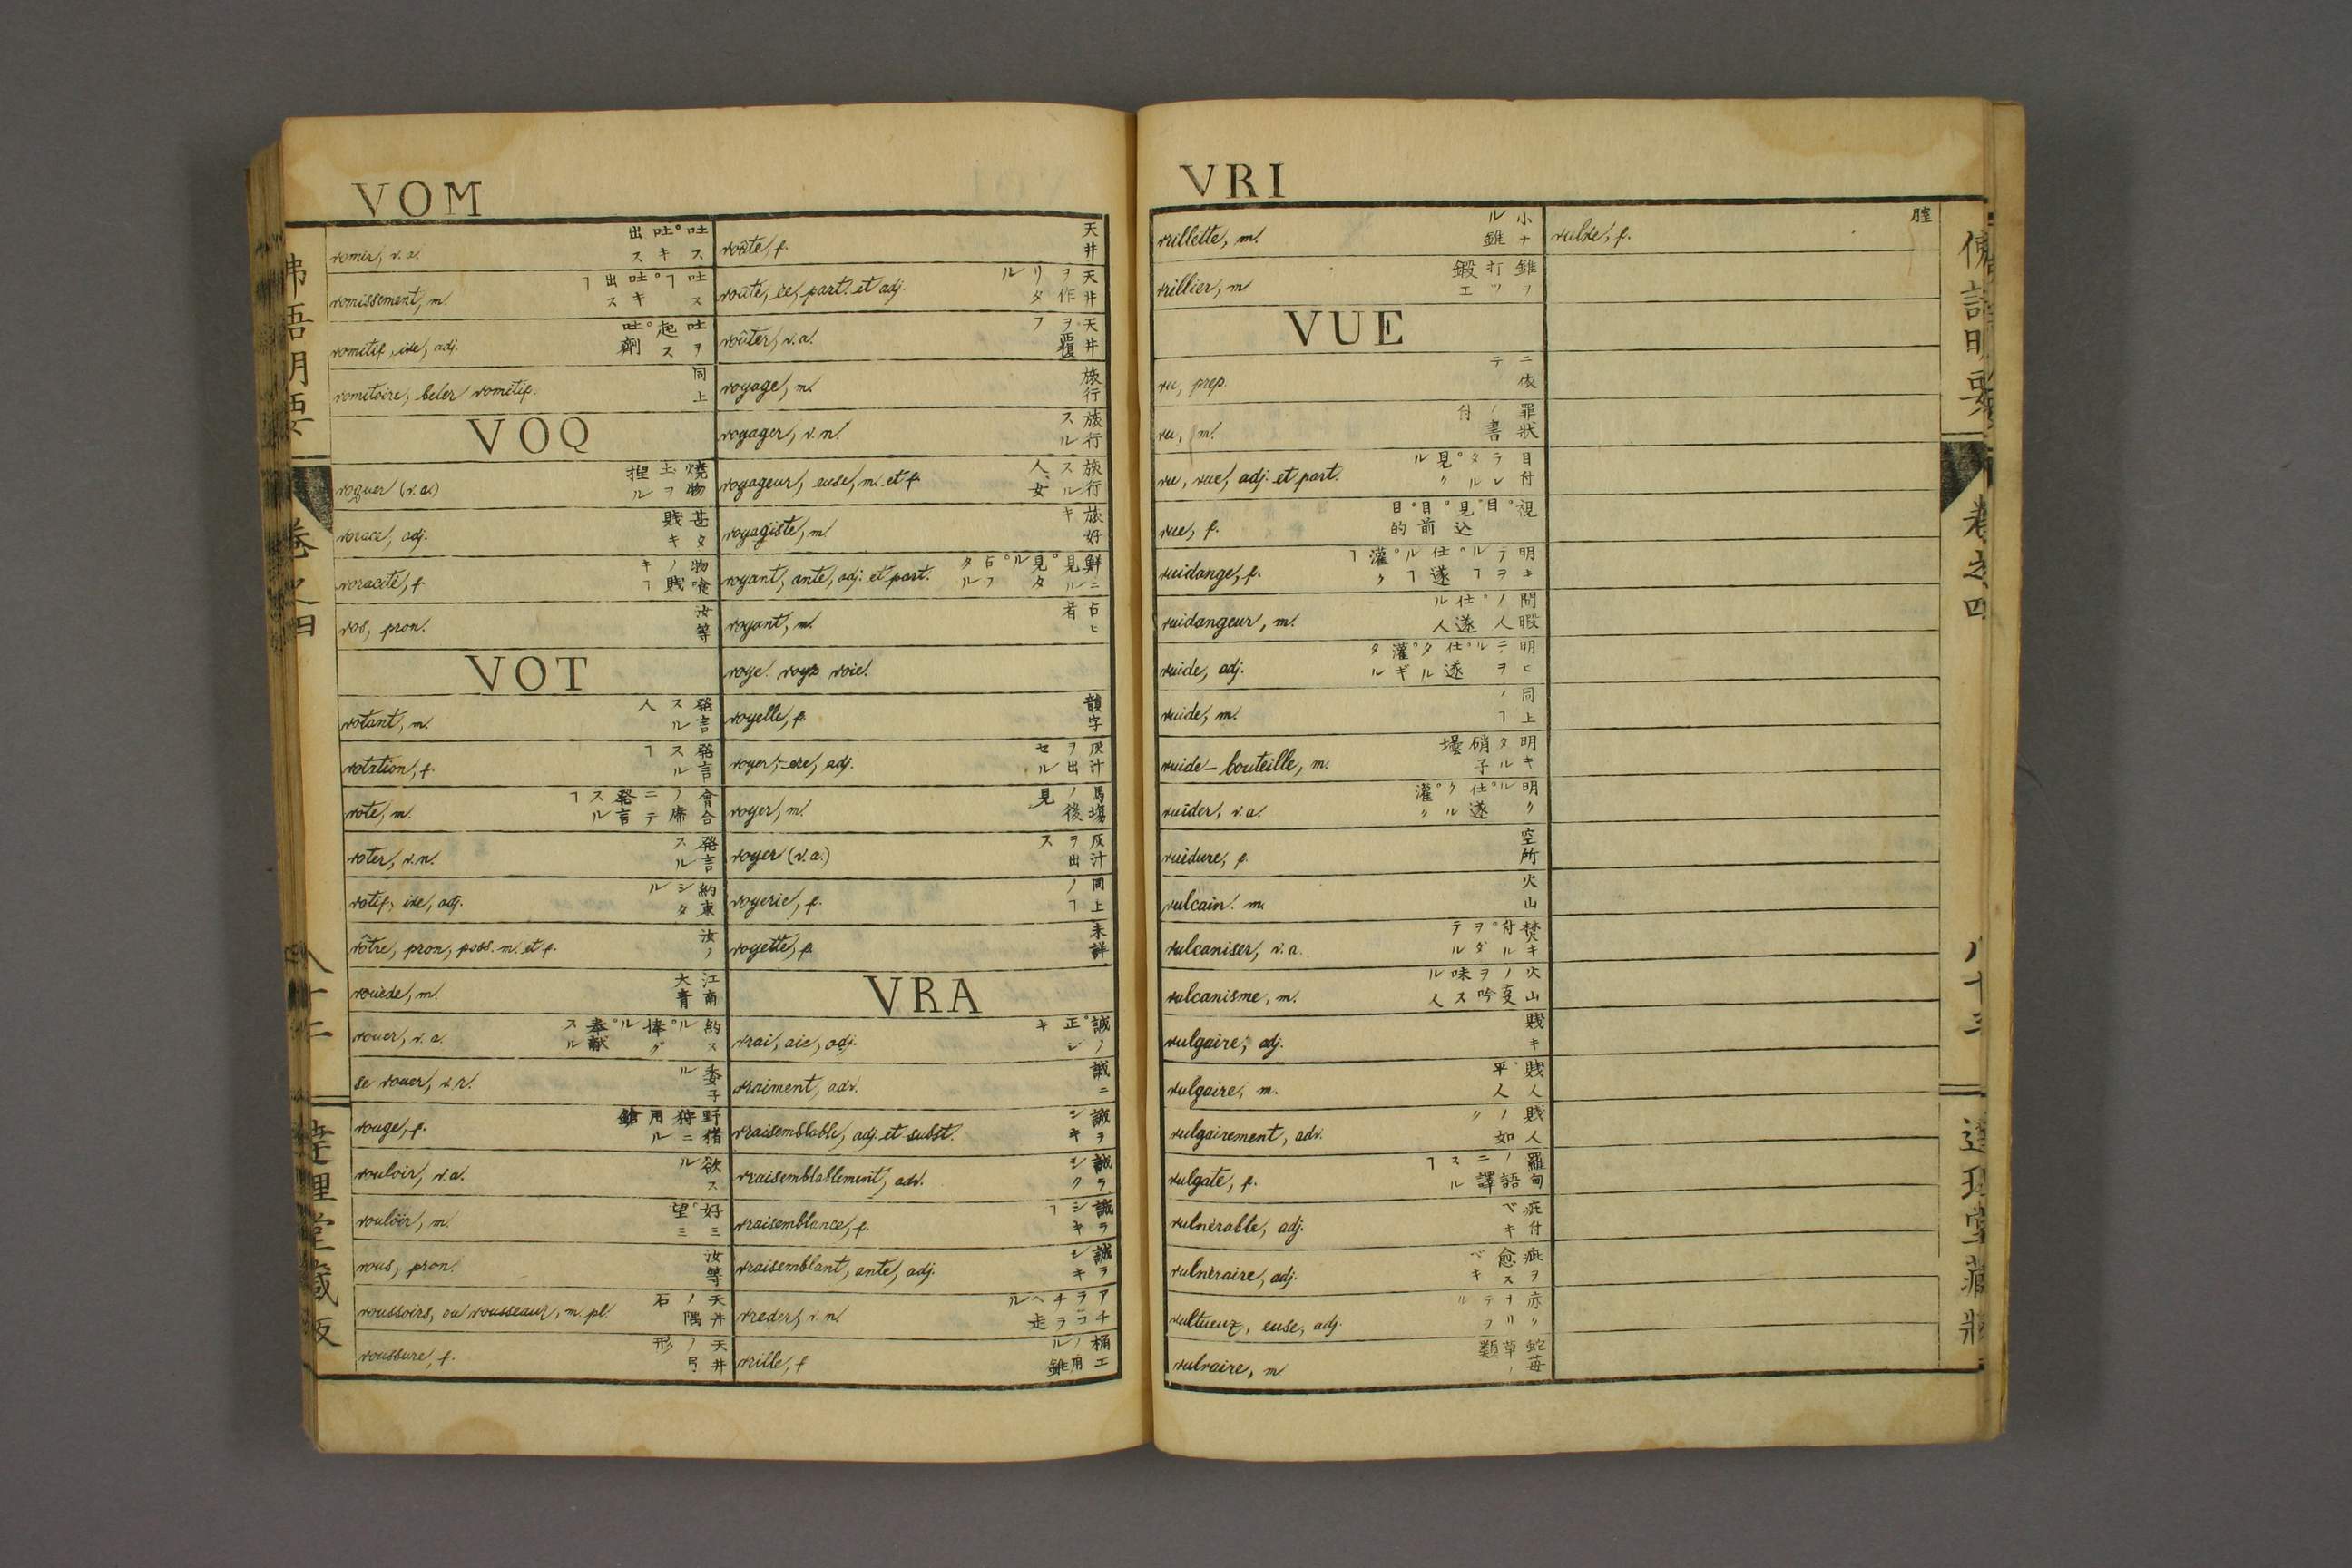 VOM
vomir, v.a. 吐ス°吐キ出ス
vomissement, m. 吐スヿ°吐キ出スヿ
vomitif, ive, adj. 吐ヲ起ス°吐劑
vomitoire, 同上
VOQ
voquer (v.a.) 燒物土ヲ捏ル
vorace, adj. 甚タ賎キ
voracité, f. 物喰ノ賎キヿ
vos, pron. 汝等
VOT
votant, m. 発言スル人
votation, f. 発言スルヿ
vote, m. 會合ノ席ニテ発言スルヿ
voter, v.n. 発言スル
votif, ive, adj. 約束シタル
vôtre, pron, poss. m. et f. 汝ノ
vouède, m. 江南大青
vouer, v.a. 約スル°捧グル°奉献スル
se vouer, v.r.
vouge, f. 野猪狩ニ用ル鎗
vouloir, v.a. 欲スル
vouloir, m. 好ミ°望ミ
vous, pron. 汝等
voussoirs, ou vousseaux, m. pl. 天井ノ隅石
voussure, f. 天井ノ弓形
voûte, f. 天井
voûté, ée, part. et adj. 天井ヲ作リタル
voûter, v.a. 天井ヲ覆フ
voyage, m. 旅行
voyager, v.n. 旅行スル
voyageur, euse, m. et f. 旅行スル人、女
voyagiste, m. 旅好キ
voyant, ante, adj. et part. 鮮ニ見ル°見タル°占フタル
voyant, m. 占ヒ者
voye. voyz voie.
voyelle, f. 韻字
voyer, ère, adj. 灰汁ヲ出セル
voyer, m. 馬塲ノ後見
voyer (v.a.) 灰汁ヲ出ス
voyerie, f. 同上ノヿ
voyette, f. 未詳
VRA
vrai, aie, adj. 誠ノ°正シキ
vraiment, adv. 誠ニ
vraisemblable, adj. et subst. 誠ラシキ
vraisemblablement, adv. 誠ラシク
vraisemblance, f. 誠ラシキヿ
vraisemblant, ante, adj. 誠ラシキ
vreder, v.n. アチラコチラヘ走ル
vrille, f 桶工ノ用ル錐
佛語明要 卷之四 達理堂藏版
VRI
vrillette, m. 小ナル錐
vrillier, m 錐ヲ打ツ鍛工
VUE
vu, prep. ニ依テ
vu, m. 罪狀ノ書付
vu, vue, adj. et part. 目付ラレタル°見ル
vue, f. 視°目°見込°目前°目的
vuidange, f. 明キテヲルヿ°仕遂ルヿ°灌クヿ
vuidangeur, m. 閒暇ノ人°仕遂ル人
vuide, adj.
vuide, m. 同上ノヿ
vuide-bouteille, m. 明キタル硝子壜
vuider, v.a. 明クル°仕遂クル°灌ク
vuidure, f. 空所
vulcain. m. 火山
vulcaniser, v.a.
vulcanisme, m. 火山ノ
vulgaire, adj. 賎キ
vulgaire, m. 賎人°平人
vulgairement, adv. 賎人ノ如ク
vulgate, f. 羅甸語ニ譯スルヿ
vulnérable, adj. 疵付ベキ
vulnéraire, adj. 疵ヲ愈スベキ
vultueux, euse, adj. 赤クナリテヲル
vulvaire, m 蛇苺ノ草類
vulve, f. 膣
佛語明要 卷之四 八十三 達理堂藏版